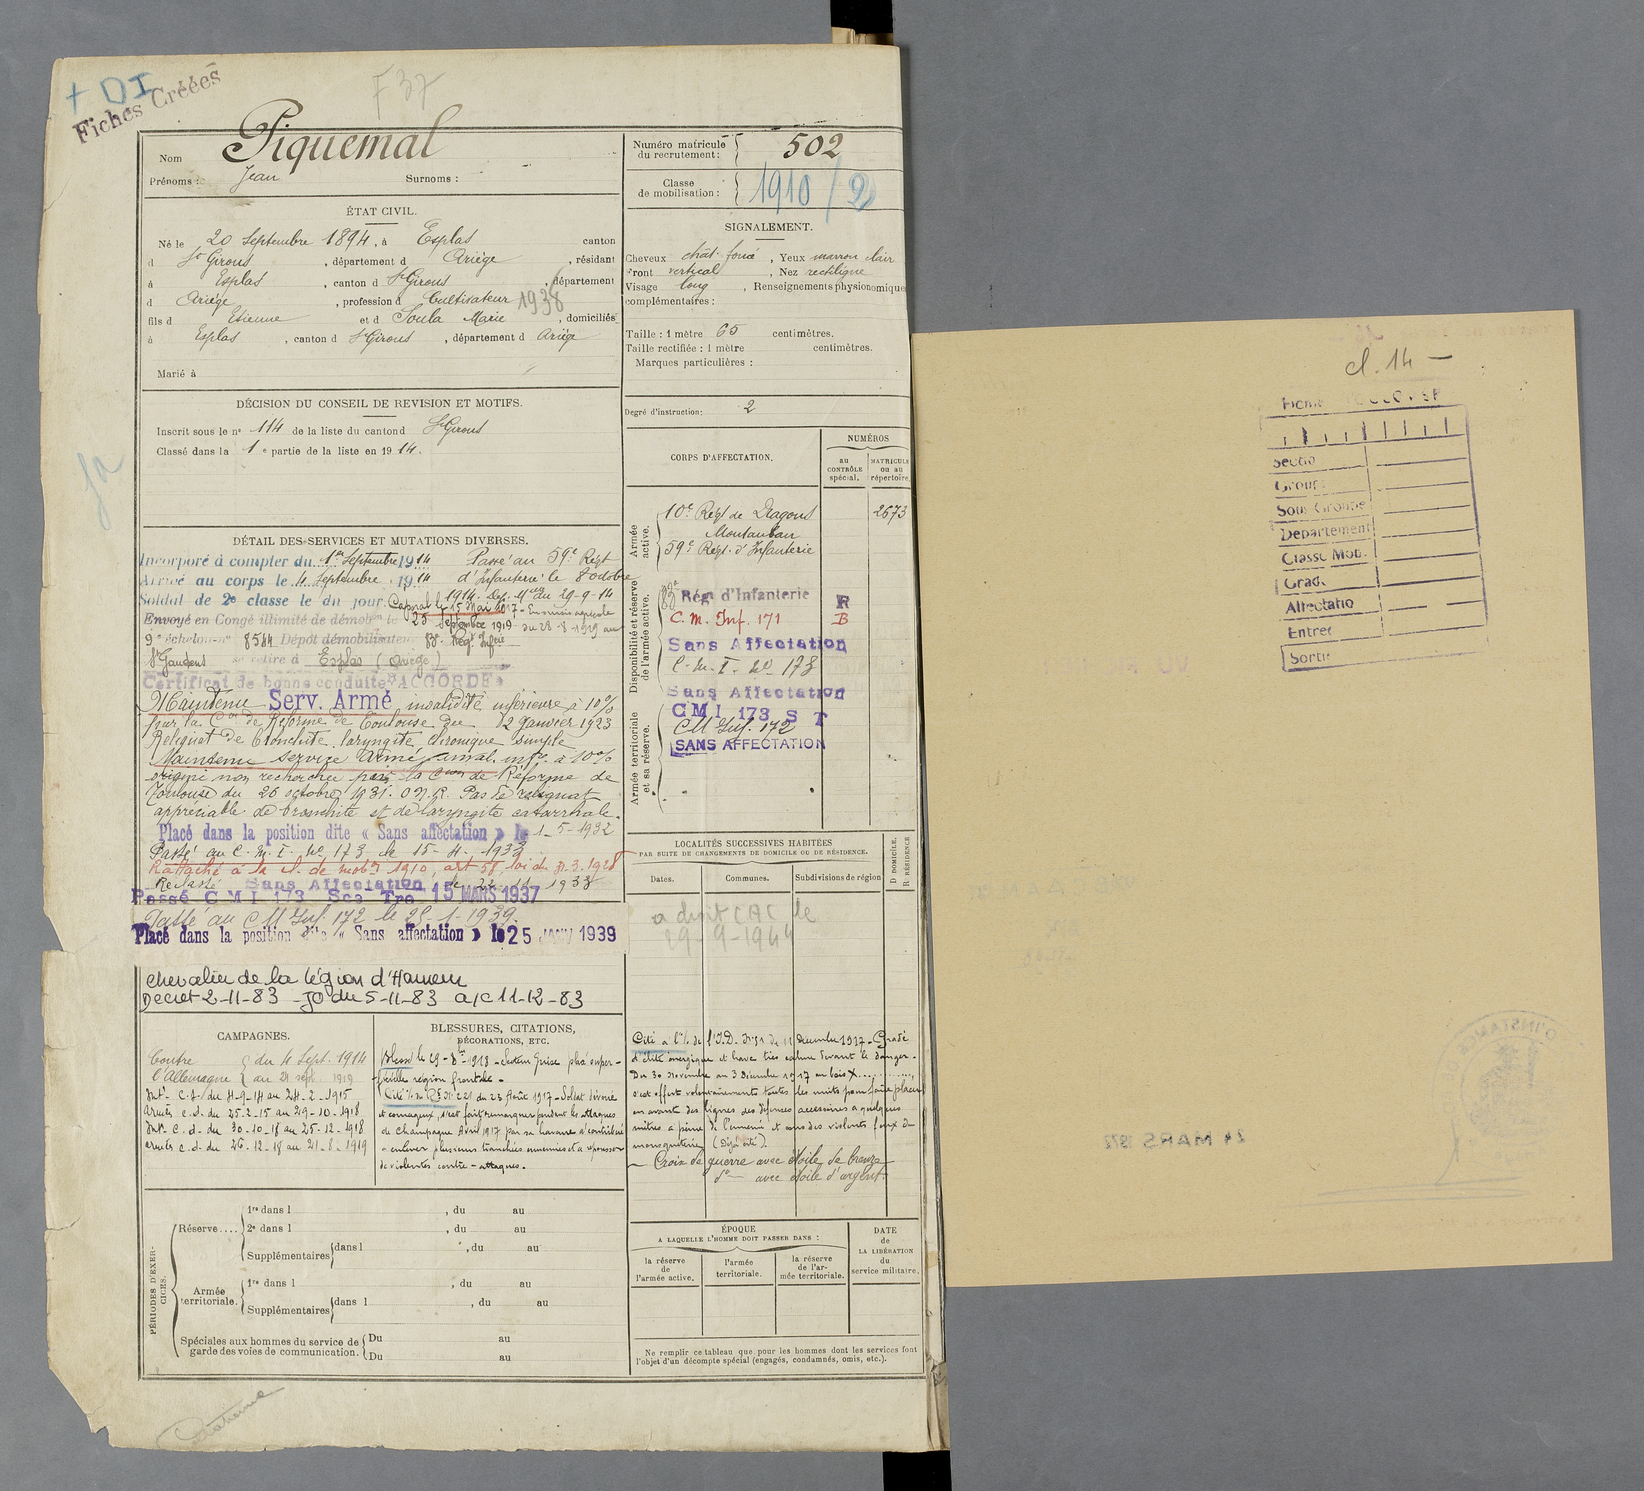 + DI
Fiches Créées
F 37
Nom Piquemal
Prénoms : Jean Surnoms :
Numéro matricule du recrutement : 502
Classe de mobilisation : 1910 / 2
ÉTAT CIVIL.
Né le 20 Septembre 1894, à Esplas canton
d St Girons, département d Ariège, résidant
à Esplas, canton d St Girons, département
d Ariège, profession d Cultivateur 1938
fils d Etienne et d Soula Marie, domiciliés
à Esplas, canton d St Girons, département d Ariège
Marié à
SIGNALEMENT.
Cheveux chât. foncé, Yeux marron clair
Front vertical, Nez rectiligne
Visage long, Renseignements physionomiques
complémentaires :
Taille : 1 mètre 65 centimètres.
Taille rectifiée : 1 mètre centimètres.
Marques particulières :
Degré d'instruction : 2
DÉCISION DU CONSEIL DE REVISION ET MOTIFS.
Inscrit sous le n° 114 de la liste du canton d St Girons
Classé dans la 1e partie de la liste en 1914.
DÉTAIL DES SERVICES ET MUTATIONS DIVERSES.
Incorporé à compter du 1er Septembre 1914 Passé au 59e Régt
Arrivé au corps le 4 Septembre 1914 d'Infanterie le 8 octobre
Soldat de 2e classe le dit jour. 1914. Déc. Mlle du 29-9-14
Caporal le 15 Mai 1917 - En sursis agricole
Envoyé en Congé illimité de démobon le 25 Septembre 1919 - du 28-8-1919 au
9e échelon n° 8544 Dépôt démobilisateur 83e Régt Infie
St Gaudens se retire à Esplas (Ariège)
Certificat de bonne conduite "ACCORDÉ"
Maintenu Serv. Armé invalidité inférieure à 10%
par la Con de Réforme de Toulouse du 12 Janvier 1923
Reliquat de bronchite laryngité chronique simple
Maintenu service armé, inval. infre à 10%
origine non recherchée par la Con de Réforme de
Toulouse du 26 octobre 1931. O.N.R. Pas de reliquat
appréciable de bronchite et de laryngite catarrhale.
Placé dans la position dite « Sans affectation » le 1-5-1932
Passé au C.M.I. No 173 le 15-4-1933
Rattaché à la cl. de mobon 1910, art 58, loi du 31.3.1928
Reclassé Sans Affectation, le 22-11-1933
Passé C M I 173 Son Tre 15 MARS 1937
Passé au CM Inf. 172 le 25-1-1939.
Placé dans la position dite « Sans affectation » le 25 JANV 1939
chevalier de la légion d'Honneur
Décret 2-11-83 JO du 5-11-83 a/c 11-12-83
CORPS D'AFFECTATION.
NUMÉROS
au CONTRÔLE spécial.
MATRICULE ou au répertoire.
Armée active.
10e Régt de Dragons 2673
Montauban
59e Régt d'Infanterie
Disponibilité et réserve de l'armée active.
83e Régt d'Infanterie R
C. M. Inf. 171 B
Sans Affectation
C. M. I. No 173
Sans Affectation
Armée territoriale et sa réserve.
CMI 173 S T
CM Inf. 172
SANS AFFECTATION
LOCALITÉS SUCCESSIVES HABITÉES
PAR SUITE DE CHANGEMENTS DE DOMICILE OU DE RÉSIDENCE.
Dates. Communes. Subdivisions de région
D DOMICILE. R RÉSIDENCE
a droit CAC le
19-9-1944
CAMPAGNES.
Contre l'Allemagne { du 4 Sept. 1914
au 21 sept. 1919
Intr. C.S. du 4-9-14 au 24-2-1915
Armées c.d. du 25-2-15 au 29-10-1918
Intr. C.d. du 30-10-18 au 25-12-1918
armées c.d. du 26-12-18 au 21-8-1919
BLESSURES, CITATIONS,
DÉCORATIONS, ETC.
Blessé le 29-8-1918 - secteur Guise plaie super-
ficielle région frontale -
Cité O. du Rgt No 221 du 23 Août 1917 - Soldat dévoué
et courageux, s'est fait remarquer pendant les attaques
de Champagne Avril 1917 par sa bravoure a contribué
à enlever plusieurs tranchées ennemies et a repousser
de violentes contre-attaques.
Cité à l'O. de l'I.D. No 51 du 11 décembre 1917 - Gradé
d'élite énergique et brave très calme devant le danger.
Du 30 Novembre au 3 Décembre 1917 au bois X............
s'est offert volontairement toutes les nuits pour faire placer
en avant des lignes des défenses accessoires à quelques
mètres à peine de l'ennemi et sous des violents feux de
mousqueterie (Déjà cité).
Croix de guerre avec étoile de bronze
do avec étoile d'argent.
PÉRIODES D'EXERCICES.
Réserve.... 1re dans l , du au
2e dans l , du au
Supplémentaires dans l , du au
Armée territoriale. 1re dans l , du au
Supplémentaires dans l , du au
Spéciales aux hommes du service de garde des voies de communication. Du au
Du au
ÉPOQUE
A LAQUELLE L'HOMME DOIT PASSER DANS :
la réserve de l'armée active.
l'armée territoriale.
la réserve de l'armée territoriale.
DATE de LA LIBÉRATION du service militaire.
Ne remplir ce tableau que pour les hommes dont les services font
l'objet d'un décompte spécial (engagés, condamnés, omis, etc.).
cl. 14 -
Section
Groupe
Sous Groupe
Département
Classe Mob.
Grade
Affectation
Entrée
Sortie
24 MARS 1972